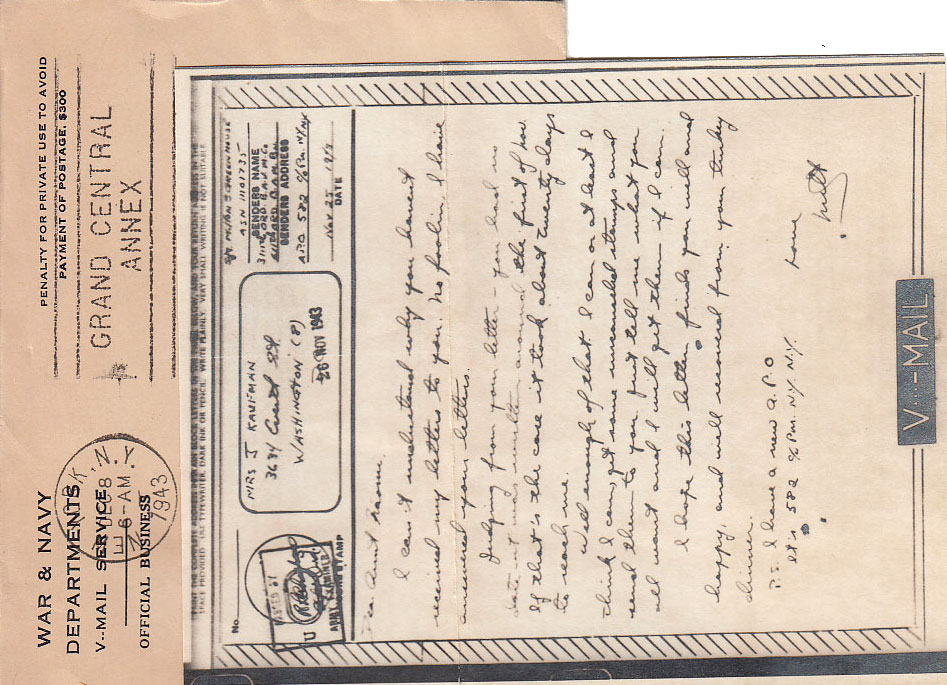 WAR & NAVY
DEPARTMENTS
V--MAIL SERVICE
OFFICIAL BUSINESS
DEC 8
6-AM
1943
N.Y.
PENALTY FOR PRIVATE USE TO AVOID
PAYMENT OF POSTAGE, $300
GRAND CENTRAL
ANNEX
PRINT THE COMPLETE ADDRESS IN PLAIN BLOCK LETTERS IN THE BELOW, AND YOUR RETURN ADDRESS IN THE
SPACE PROVIDED. USE TYPEWRITER, DARK INK OR PENCIL. WRITE PLAINLY. VERY SMALL WRITING IS NOT SUITABLE.
No.
PASSED BY
U
ARMY EXAMINER
ARMY
STAMP
MRS J KAUFMAN
3634 St
WASHINGTON (8)
26 NOV 1943
GREENHOUSE
ASN 11101735
SENDERS NAME
SENDERS ADDRESS
APO 582 % PM NY NY
NOV 25 1943
DATE
Dear Aunt
I can't understand why you havent
received my letters to you. No foolin, I have
answered your letters.
Judging from your letter - you had no
date - it was written around the first of nov.
If that's the case it took about twenty days
to reach me.
Well enough of that. I can or at least I
think I can, get some unusual stamps and
send them to you. Just tell me what you
all want and I will get them if I can.
I hope this letter finds you well and
happy, and will recover from your turkey
dinner.
Love
Milt
P.S. I have a new A.P.O
It's 582 % P.M. N.Y. N.Y.
V···-MAIL